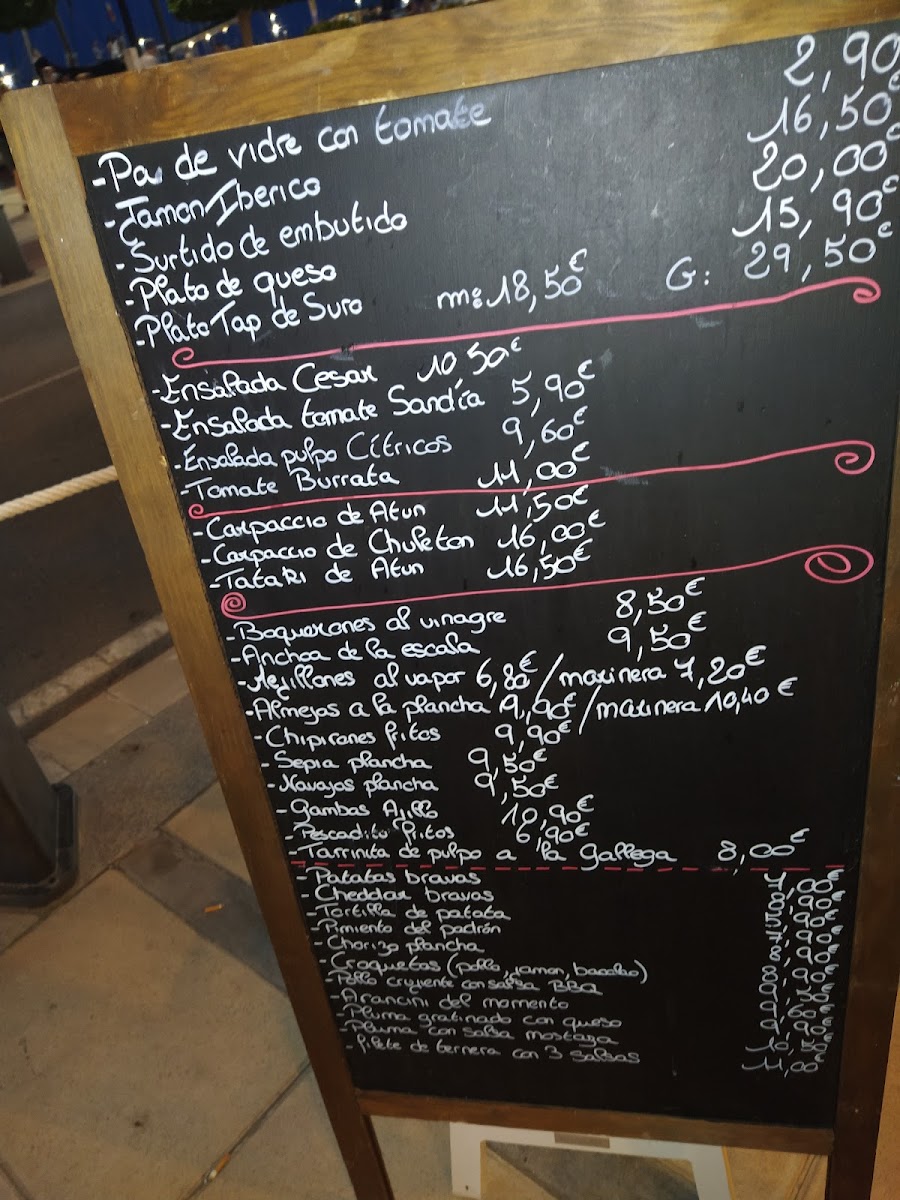 -Pa de vidre con tomate 2,90
-Jamon Iberico 16,50€
-Surtido de embutido 20,00€
-Plato de queso 15,90€
-Plato Tap de Suro m: 18,50€ G: 29,50€
-Ensalada Cesar 10 50€
-Ensalada tomate Sandía 5,90€
-Ensalada pulpo Cítricos 9,60€
-Tomate Burrata 11,00€
-Carpaccio de Atun 11,50€
-Carpaccio de Chuleton 16,00€
-Tataki de Atun 16,50€
-Boquerones al vinagre 8,50€
-Anchoa de la escala 9,50€
-Mejillones al vapor 6,80€/marinera 7,20€
-Almejas a la plancha 9,90€/marinera 10,40€
-Chipirones fritos 9,90€
-Sepia plancha 9,50€
-Navajos plancha 9,50€
-Gambas Ajillo 10,90€
-Pescadito fritos 6,90€
-Tarrinita de pulpo a la gallega 8,00€
-Patatas bravas 7,00€
-Cheddar bravas 8,90€
-Tortilla de patata 5,90€
-Pimiento del padrón 7,90€
-Chorizo plancha 8,90€
-Croquetas (pollo, jamon, bacalao) 8,90€
-Pollo crujiente con salsa BBQ 9,50€
-Arancini del momento 9,60€
-Pluma gratinado con queso 9,90€
-Pluma con salsa mostaza 10,50€
-filete de ternera con 3 salsas 11,00€